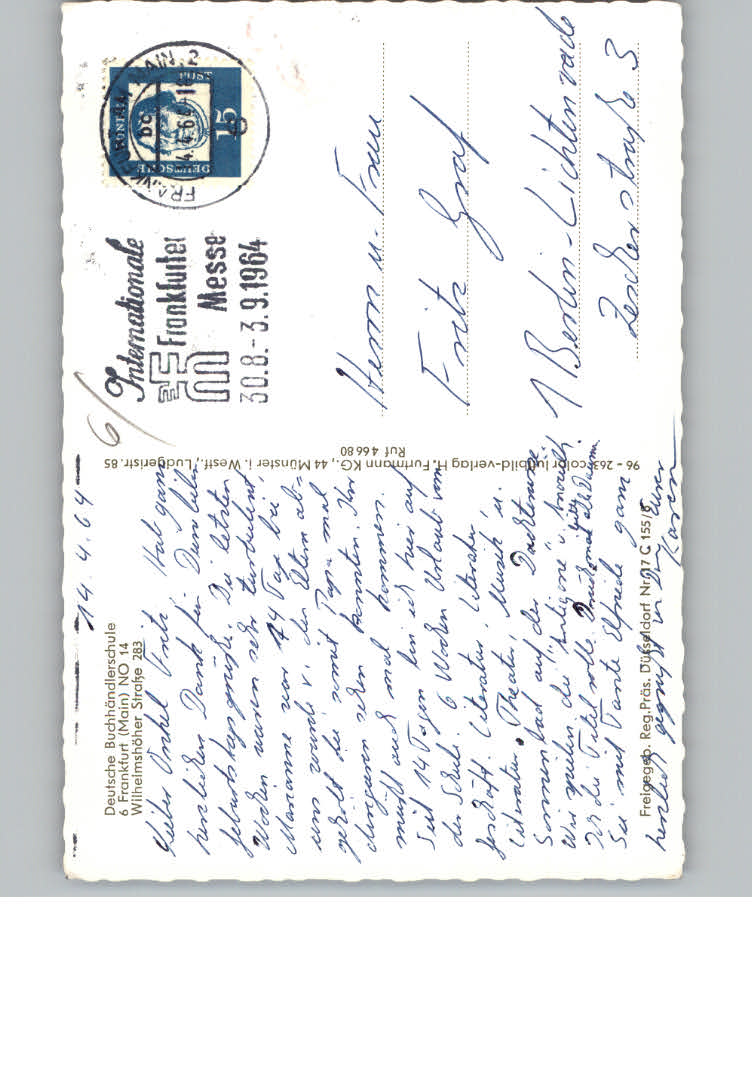 14.4.64
Deutsche Buchhändlerschule
6 Frankfurt (Main) NO 14
Wilhelmshöher Straße 283
Lieber Onkel Fritz! Hab ganz
herzlichen Dank für Deine lieben
Geburtstagsgrüße. Die letzten
Wochen waren sehr turbulent,
Marianne war 14 Tage bei
uns wurde v. den Eltern ab-
geholt die somit Papa mal
wieder sehen konnten. Ihr
müßt auch mal kommen.
Seit 14 Tagen bin ich hier auf
der Schule. 6 Wochen Urlaub vom
Geschäft. Literatur, Literatur
Literatur, Theater, Musik u.
Sonnenbad auf der Dachterrasse.
Wir spielen die "Antigone" v. Anouilh.
Ich die Titelrolle. Drück mal bitte
Sei mit Tante Elfriede ganz
herzlich gegrüßt von Eurer
Karen
96 - 263 color luftbild-verlag H. Furtmann KG., 44 Münster i. Westf., Ludgeristr. 85
Ruf 4 66 80
Freigegeb. Reg.Präs. Düsseldorf Nr. 17 C 155/8
6
Internationale
Frankfurter
Messe
30.8.-3.9.1964
FRANKFURT MAIN 2
14.4.64-18
DEUTSCHE
POST
15
Herrn u. Frau
Fritz Graf
1 Berlin-Lichtenrade
Zescher straße 3